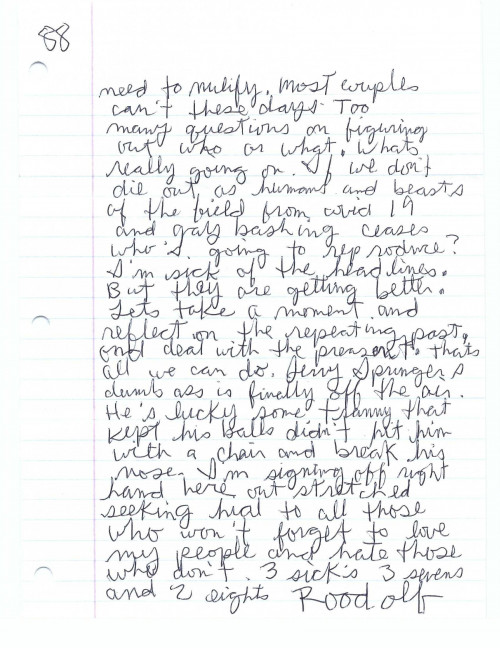 88
need to mulify. Most couples
can't these days. Too
many questions on figuring
out who or what. Whats
really going on. If we don't
die out as humans and beasts
of the field from covid 19
and gay bashing ceases
who's going to reproduce?
I'm sick of the headlines.
But they are getting better.
Lets take a moment and
reflect on the repeating past,
and deal with the presant. thats
all we can do. Jerry Springers
dumb ass is finally off the air.
He's lucky some tranny that
kept his balls didn't hit him
with a chair and break his
nose. I'm signing off right
hand here out stretched
seeking hial to all those
who won't forget to love
my people and hate those
who don't. 3 sick's 3 sevens
and 2 eights Roodolf